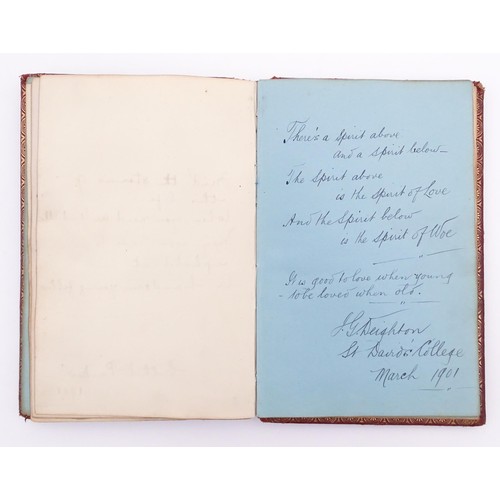 There's a spirit above
and a spirit below—
The spirit above
is the spirit of Love
And the Spirit below
is the spirit of Woe
It is good to love when young
- to be loved when old.
J. G. Deighton
St David's College
March 1901